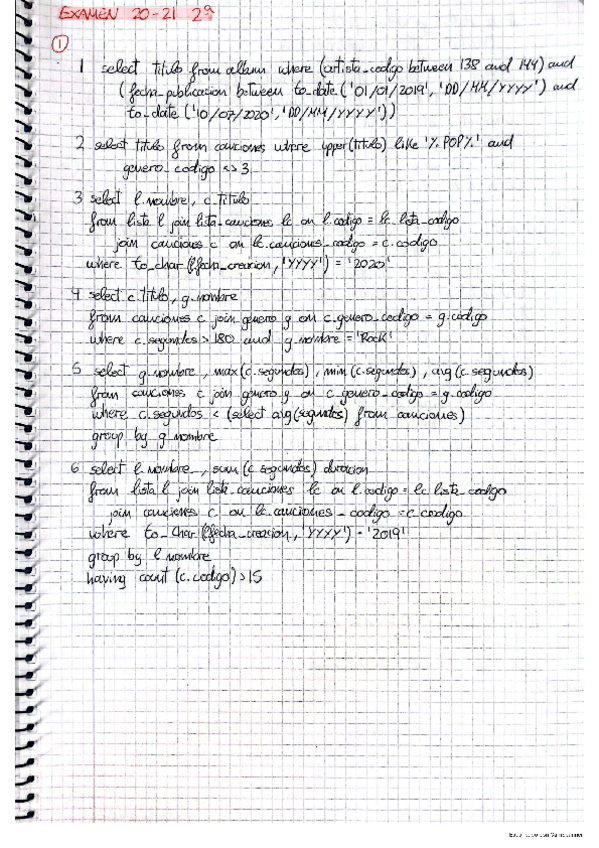 EXAMEN 20-21 2ª
1
1 select titulo from album where (artista_codigo between 138 and 144) and
(fecha_publicacion between to_date('01/01/2019','DD/MM/YYYY') and
to_date('10/07/2020','DD/MM/YYYY'))
2 select titulo from canciones where upper(titulo) like '%POP%' and
genero_codigo <> 3
3 select l.nombre, c.titulo
from lista l join lista_canciones lc on l.codigo = lc.lista_codigo
join canciones c on lc.canciones_codigo = c.codigo
where to_char(l.fecha_creacion, 'YYYY') = '2020'
4 select c.titulo, g.nombre
from canciones c join genero g on c.genero_codigo = g.codigo
where c.segundos > 180 and g.nombre = 'Rock'
5 select g.nombre, max(c.segundos), min(c.segundos), avg(c.segundos)
from canciones c join genero g on c.genero_codigo = g.codigo
where c.segundos < (select avg(segundos) from canciones)
group by g.nombre
6 select l.nombre, sum(c.segundos) duracion
from lista l join lista_canciones lc on l.codigo = lc.lista_codigo
join canciones c on lc.canciones_codigo = c.codigo
where to_char(l.fecha_creacion, 'YYYY') = '2019'
group by l.nombre
having count(c.codigo) > 15